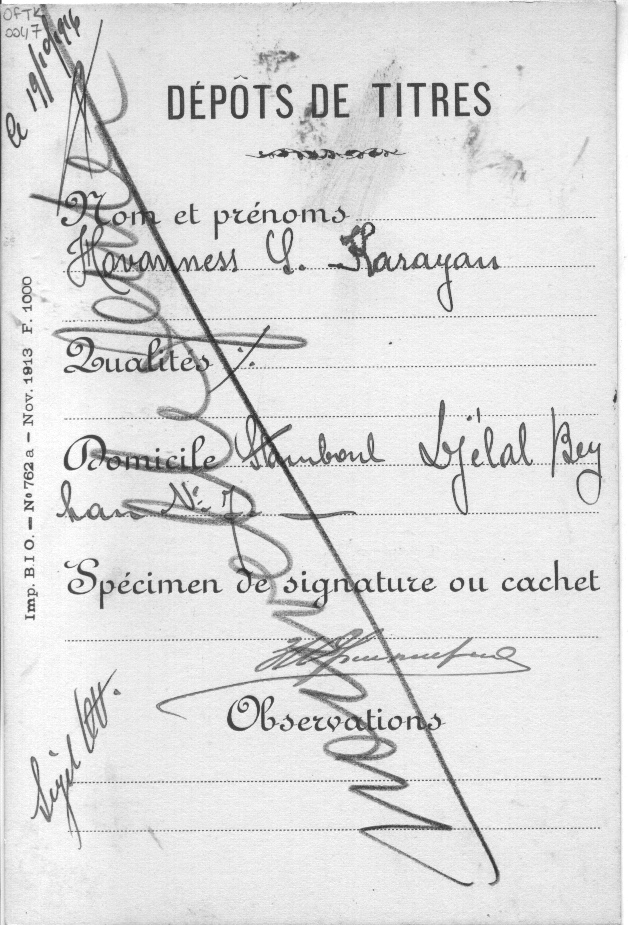 OFTK
0047
le 19/10/
DÉPÔTS DE TITRES
Nom et prénoms
Hovanness Y. Karayan
Qualités
Domicile Stamboul Djélal Bey
han No. 7
Spécimen de signature ou cachet
Observations
Imp. B.I O. — No 762 a — Nov. 1913 F. 1000